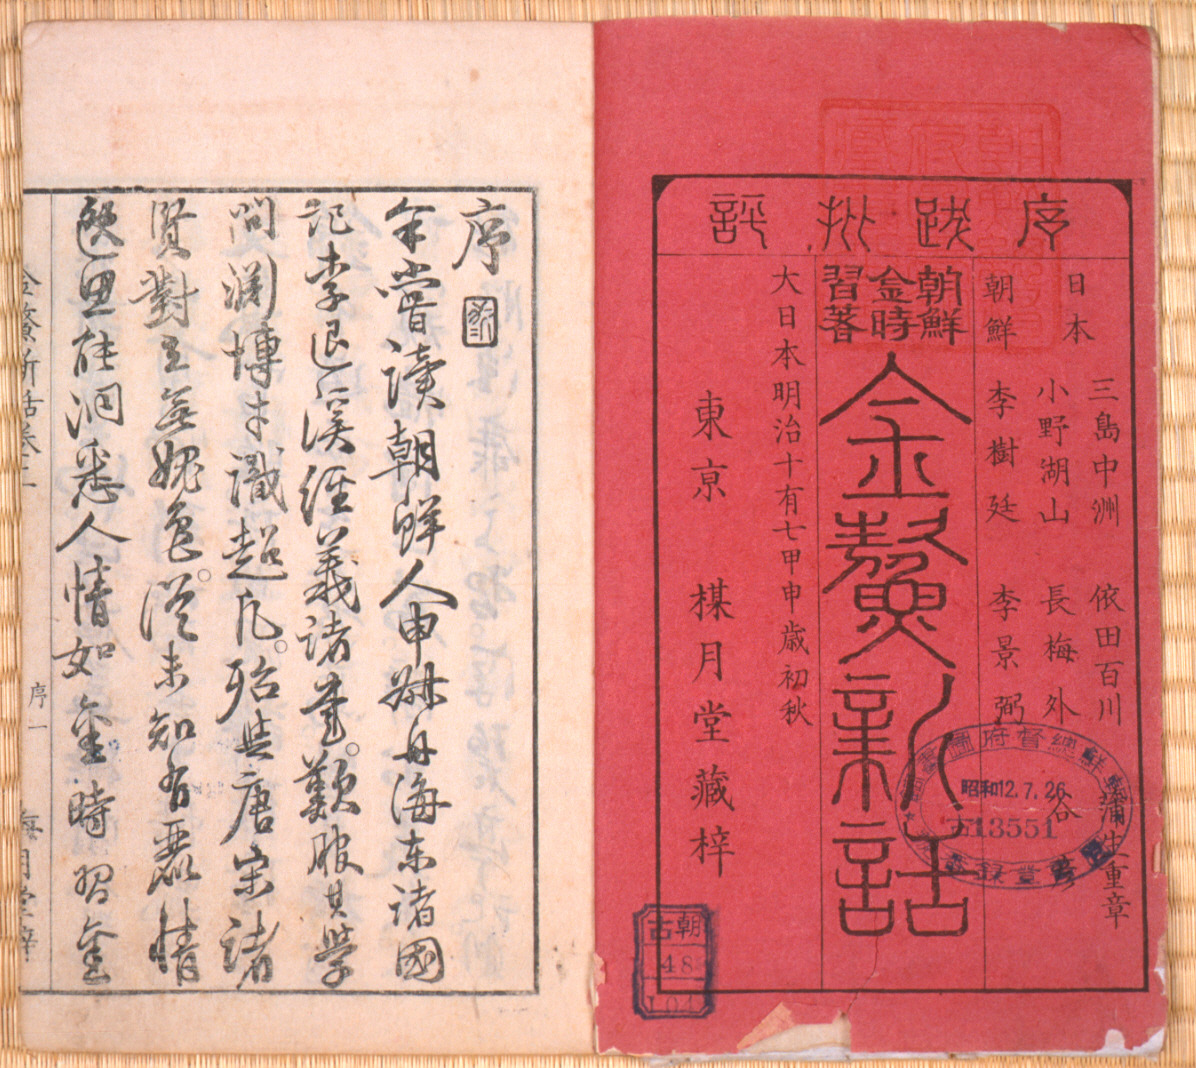 序跋批評
日本
三島中洲 依田百川 蒲生重章
小野湖山 長梅外
朝鮮
李樹廷 李景弼
朝鮮
金時
習著
金鰲新話
大日本明治十有七甲申歳初秋
東京 楳月堂藏梓
昭和12.7.26
13551
朝
古
48
序
余嘗讀朝鮮人申叔舟海東諸國
記李退溪經義諸書。歎服其學
問淵博才識超凡。殆與唐宋諸
賢對立無媿色。從未知有麗情
逸思能洞悉人情如金時習金
金鰲新話卷之
序一
梅月堂梓